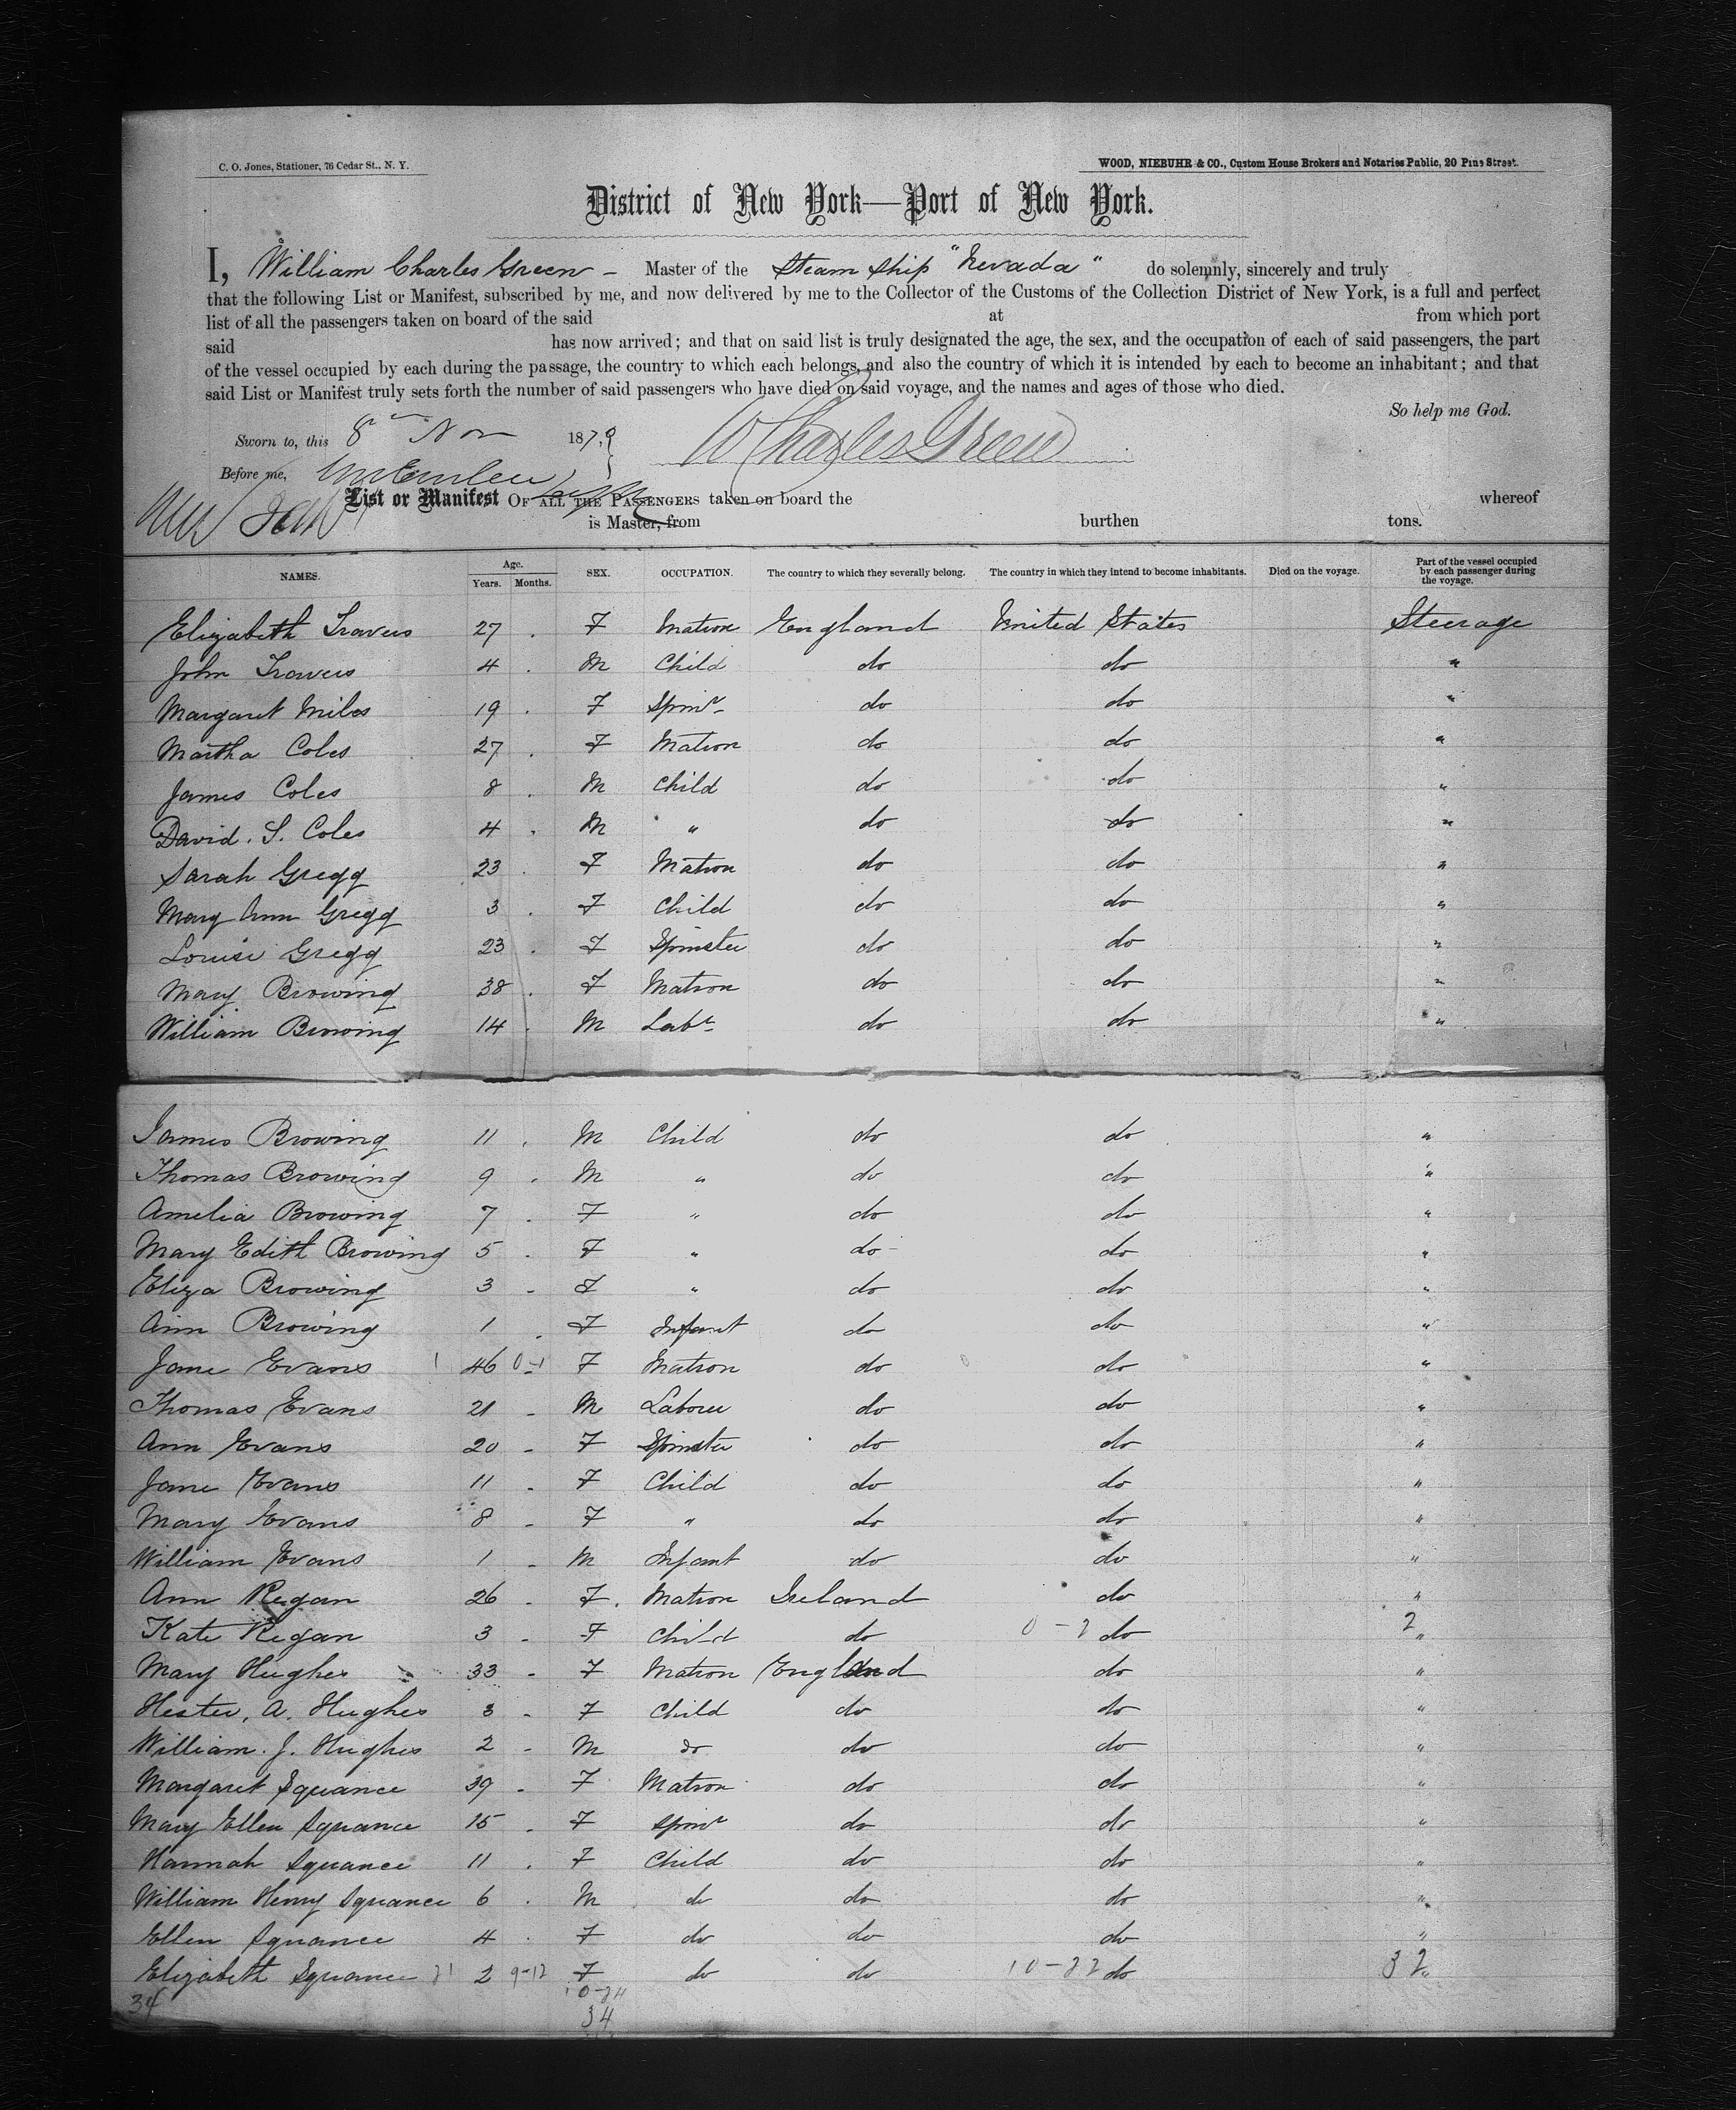 C. O. Jones, Stationer, 76 Cedar St., N. Y.
WOOD, NIEBUHR & CO., Custom House Brokers and Notaries Public, 20 Pine Street.
District of New York—Port of New York.
I, William Charles Green - Master of the Steam Ship "Nevada" do solemnly, sincerely and truly
that the following List or Manifest, subscribed by me, and now delivered by me to the Collector of the Customs of the Collection District of New York, is a full and perfect
list of all the passengers taken on board of the said at from which port
said has now arrived; and that on said list is truly designated the age, the sex, and the occupation of each of said passengers, the part
of the vessel occupied by each during the passage, the country to which each belongs, and also the country of which it is intended by each to become an inhabitant; and that
said List or Manifest truly sets forth the number of said passengers who have died on said voyage, and the names and ages of those who died.
So help me God.
Sworn to, this 8th Nov 1879
W Charles Green
Before me,
List or Manifest OF ALL THE PASSENGERS taken on board the whereof
is Master, from burthen tons.
NAMES. Age. Years. Months. SEX. OCCUPATION. The country to which they severally belong. The country in which they intend to become inhabitants. Died on the voyage. Part of the vessel occupied by each passenger during the voyage.
Elizabeth Travers 27 . F Matron England United States Steerage
John Travers 4 . M Child do do "
Margaret Miles 19 . F Spinr do do "
Martha Coles 27 . F Matron do do "
James Coles 8 . M Child do do "
David. S. Coles 4 . M " do do "
Sarah Gregg 23 . F Matron do do "
Mary Ann Gregg 3 . F Child do do "
Louisi Gregg 23 . F Spinster do do "
Mary Browing 38 . F Matron do do "
William Browing 14 . M Labr do do "
James Browing 11 . M Child do do "
Thomas Browing 9 . M " do do "
Amelia Browing 7 . F " do do "
Mary Edith Browing 5 . F " do do "
Eliza Browing 3 - F " do do "
Ann Browing 1 . F Infant do do "
Jane Evans 1 46 0-1 F Matron do do "
Thomas Evans 21 - M Laborer do do "
Ann Evans 20 - F Spinster do do "
Jane Evans 11 - F Child do do "
Mary Evans 8 - F " do do "
William Evans 1 - M Infant do do "
Ann Regan 26 - F. Matron Ireland do "
Kate Regan 3 - F Child do 0-2 do 2 "
Mary Hughes 33 - F Matron England do "
Hester. A. Hughes 3 - F Child do do "
William. J. Hughes 2 - M do do do "
Margaret Squance 39 - F Matron do do "
Mary Ellen Squance 15 . F Spinr do do "
Hannah Squance 11 . F Child do do "
William Henry Squance 6 . M do do do "
Ellen Squance 4 . F do do do "
Elizabeth Squance 21 2 9-12 F do do 10-22 do 32 "
34 10-24
34